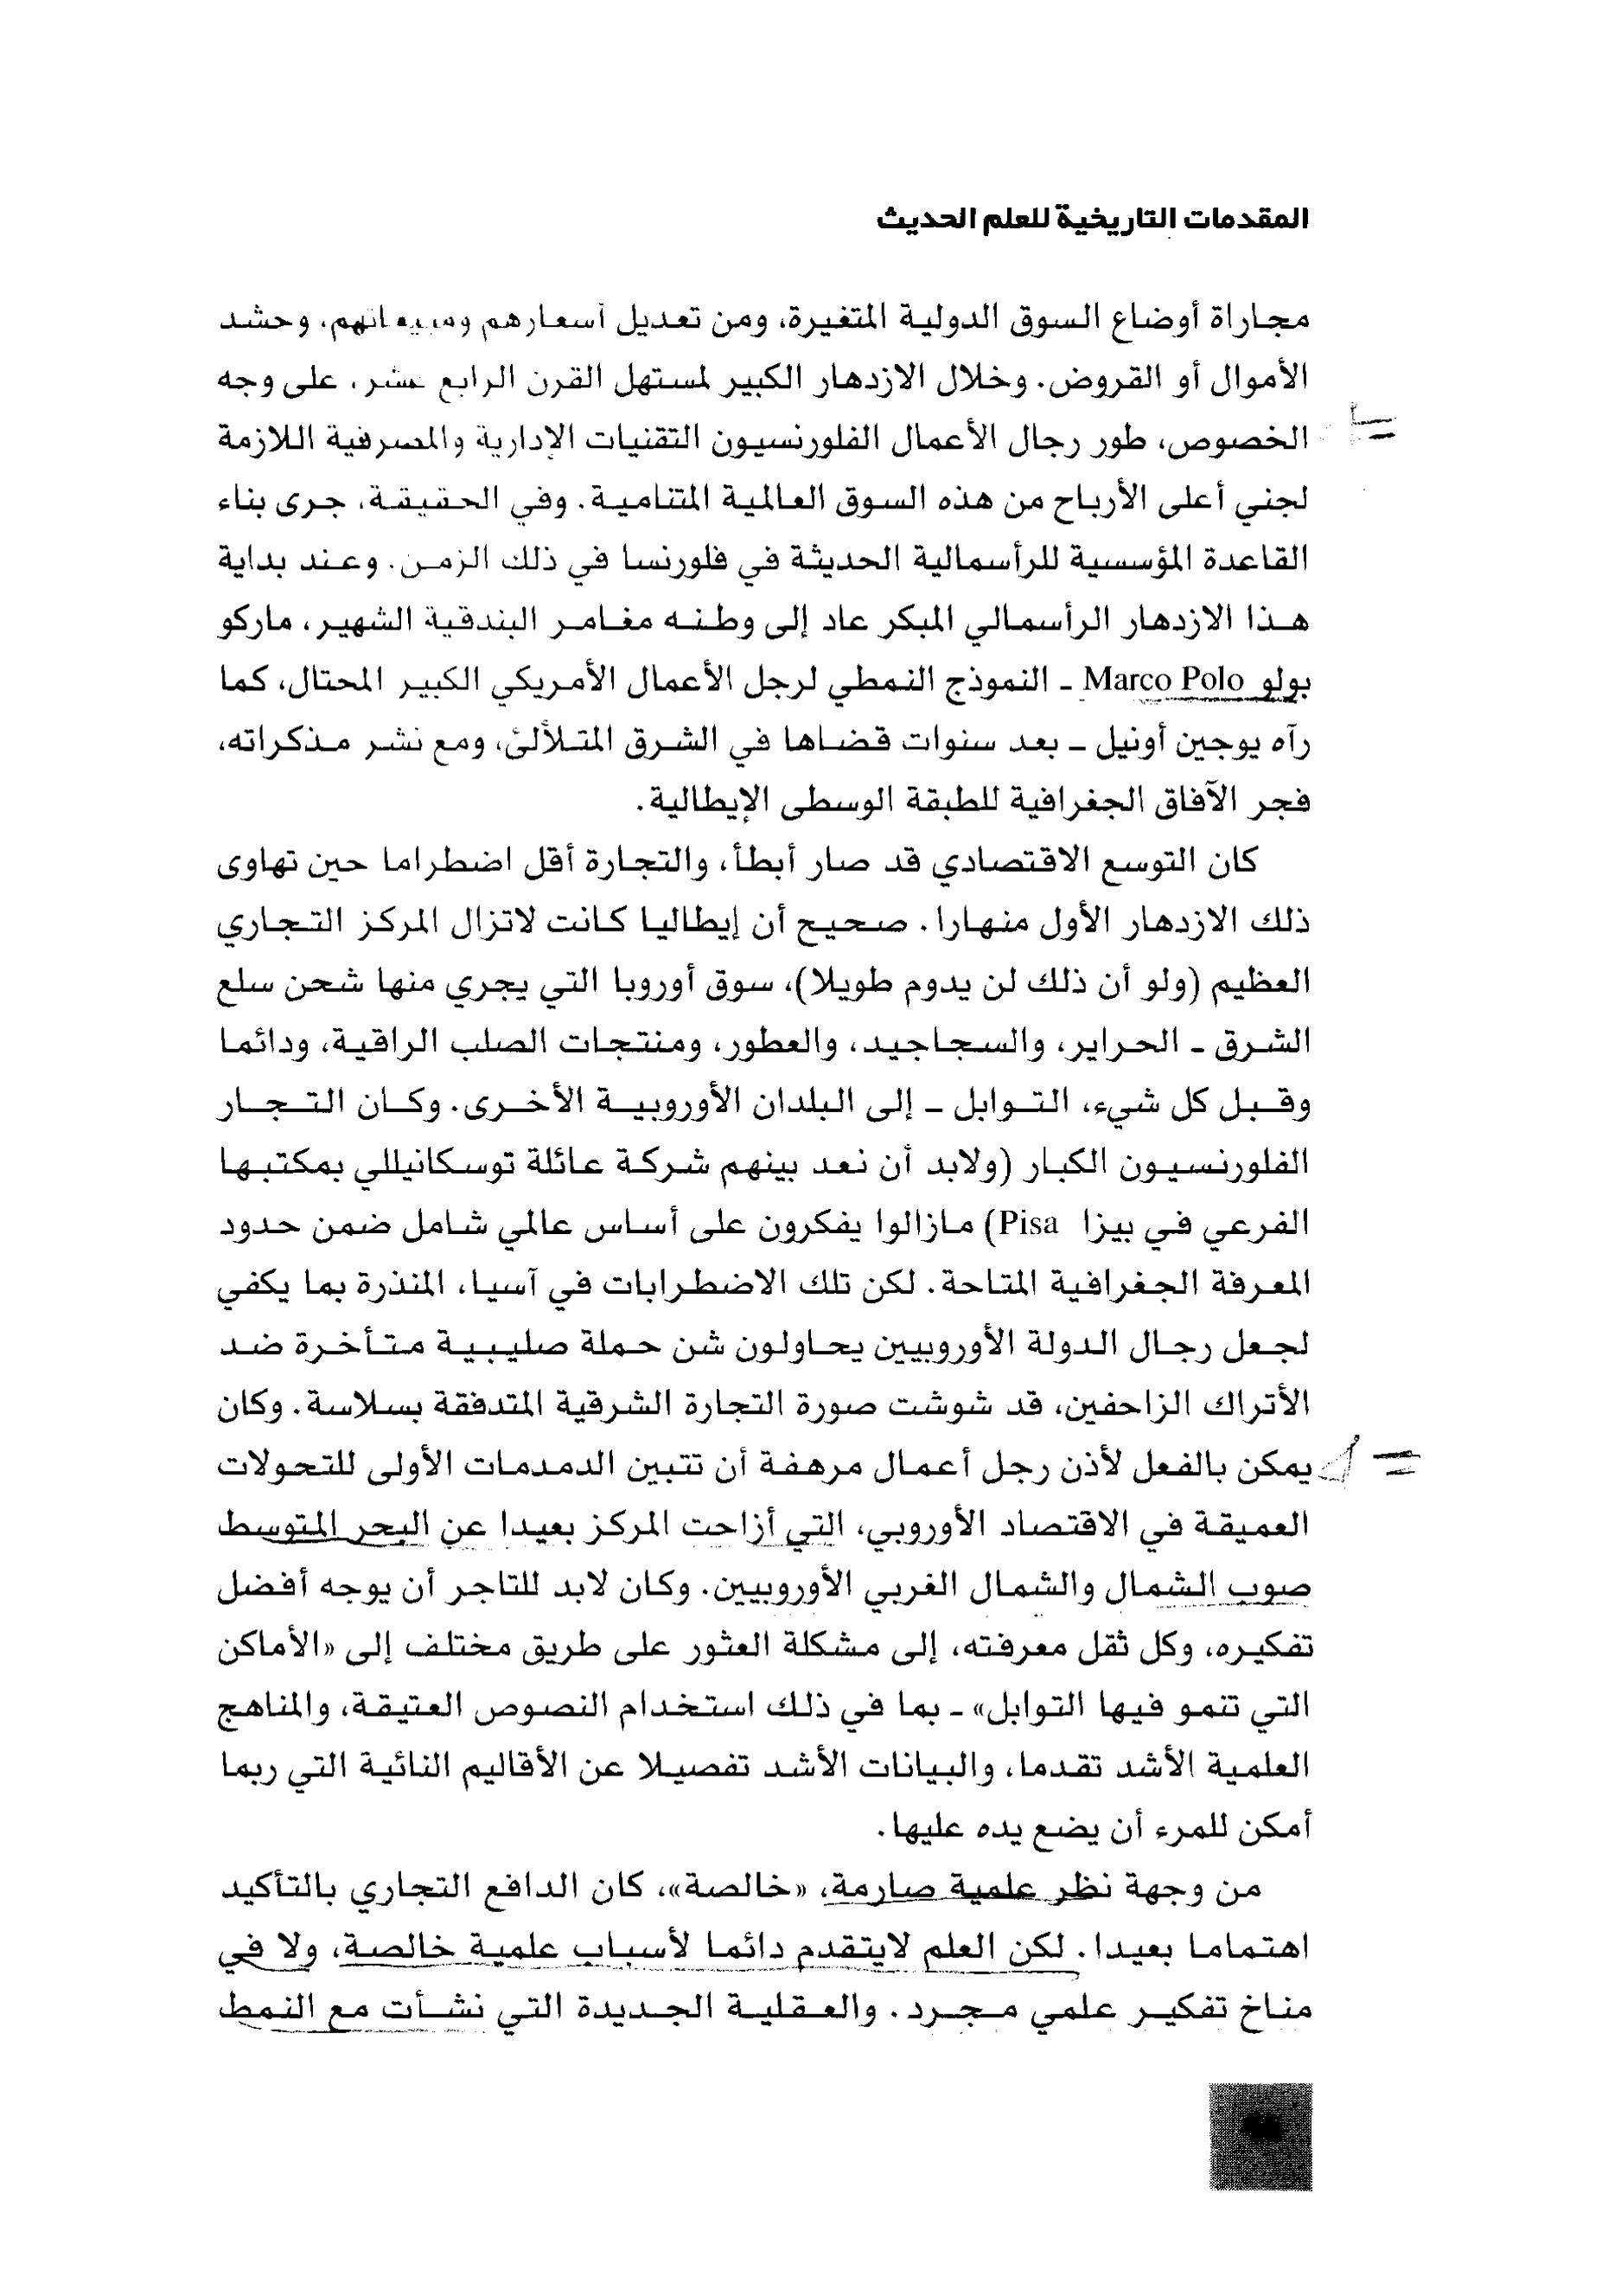 المقدمات التاريخية للعلم الحديث
مجاراة أوضاع السوق الدولية المتغيرة، ومن تعديل أسعارهم ومبيعاتهم، وحشد
الأموال أو القروض. وخلال الازدهار الكبير لمستهل القرن الرابع عشر، على وجه
الخصوص، طور رجال الأعمال الفلورنسيون التقنيات الإدارية والمصرفية اللازمة
لجني أعلى الأرباح من هذه السوق العالمية المتنامية. وفي الحقيقة، جرى بناء
القاعدة المؤسسية للرأسمالية الحديثة في فلورنسا في ذلك الزمن. وعند بداية
هذا الازدهار الرأسمالي المبكر عاد إلى وطنه مغامر البندقية الشهير، ماركو
بولو Marco Polo ـ النموذج النمطي لرجل الأعمال الأمريكي الكبير المحتال، كما
رآه يوجين أونيل ـ بعد سنوات قضاها في الشرق المتلألئ، ومع نشر مذكراته،
فجر الآفاق الجغرافية للطبقة الوسطى الإيطالية.
كان التوسع الاقتصادي قد صار أبطأ، والتجارة أقل اضطراما حين تهاوى
ذلك الازدهار الأول منهارا. صحيح أن إيطاليا كانت لاتزال المركز التجاري
العظيم (ولو أن ذلك لن يدوم طويلا)، سوق أوروبا التي يجري منها شحن سلع
الشرق ـ الحراير، والسجاجيد، والعطور، ومنتجات الصلب الراقية، ودائما
وقبل كل شيء، التوابل ـ إلى البلدان الأوروبية الأخرى. وكان التجار
الفلورنسيون الكبار (ولابد أن نعد بينهم شركة عائلة توسكانيللي بمكتبها
الفرعي في بيزا Pisa) مازالوا يفكرون على أساس عالمي شامل ضمن حدود
المعرفة الجغرافية المتاحة. لكن تلك الاضطرابات في آسيا، المنذرة بما يكفي
لجعل رجال الدولة الأوروبيين يحاولون شن حملة صليبية متأخرة ضد
الأتراك الزاحفين، قد شوشت صورة التجارة الشرقية المتدفقة بسلاسة. وكان
يمكن بالفعل لأذن رجل أعمال مرهفة أن تتبين الدمدمات الأولى للتحولات
العميقة في الاقتصاد الأوروبي، التي أزاحت المركز بعيدا عن البحر المتوسط
صوب الشمال والشمال الغربي الأوروبيين. وكان لابد للتاجر أن يوجه أفضل
تفكيره، وكل ثقل معرفته، إلى مشكلة العثور على طريق مختلف إلى «الأماكن
التي تنمو فيها التوابل» ـ بما في ذلك استخدام النصوص العتيقة، والمناهج
العلمية الأشد تقدما، والبيانات الأشد تفصيلا عن الأقاليم النائية التي ربما
أمكن للمرء أن يضع يده عليها.
من وجهة نظر علمية صارمة، «خالصة»، كان الدافع التجاري بالتأكيد
اهتماما بعيدا. لكن العلم لايتقدم دائما لأسباب علمية خالصة، ولا في
مناخ تفكير علمي مجرد. والعقلية الجديدة التي نشأت مع النمط